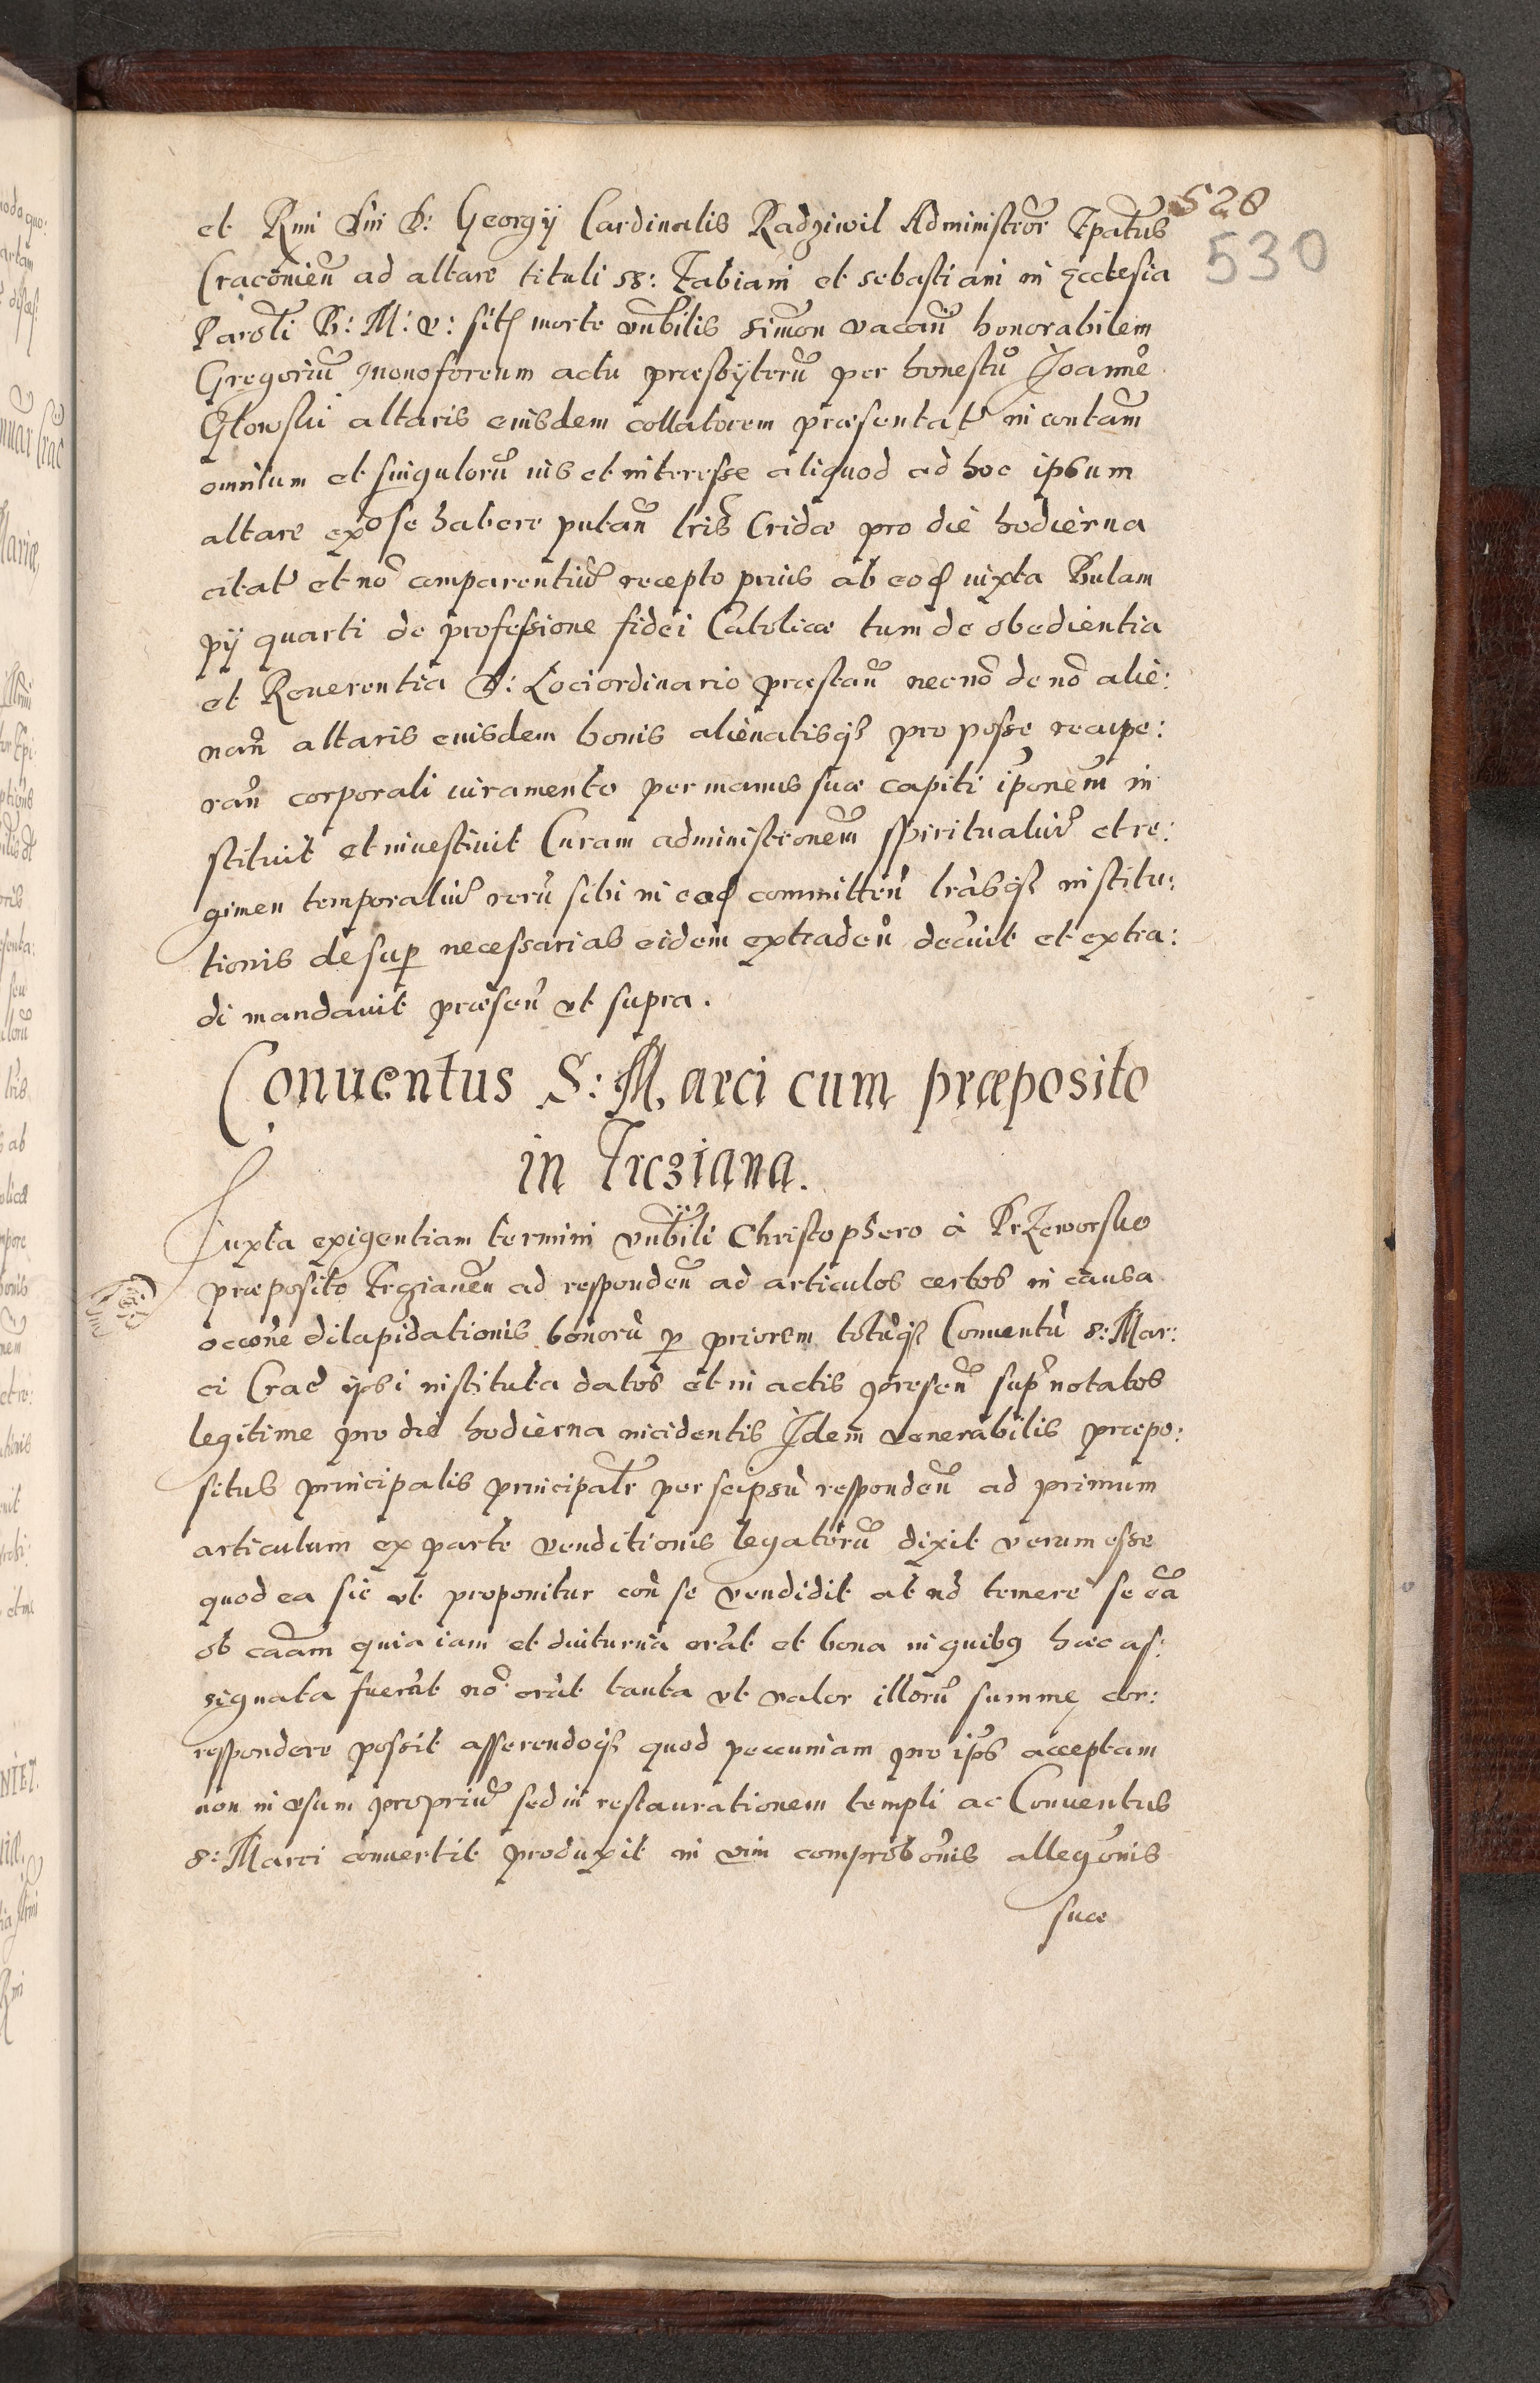 528
530
et Rmi Dni D: Georgij Cardinalis Radziwil Administror Epatus
Cracouien ad altare tituli SS: Fabiani et sebastiani in Ecclesia
Paroli B: M: V: sit morte vnbilis Simon vacan honorabilem
Gregoriu Inonoforeum actu præsbyteru per honestu Joanne
Glowski altaris eiusdem collatorem præsentat in contam
omnium et singuloru ius et interesse aliquod ad hoc ipsum
altare exo se habere putan lris Cridæ pro die hodierna
citat et no comparentiu recepto prius ab eod iuxta Bulam
pij quarti de professione fidei Catolicæ tum de obedientia
et Reuerentia D: Lociordinario præstan necno de no alie:
nan altaris eiusdem bonis alienatisq pro posse recupe:
ran corporali iuramento per manus suæ capiti iponem in
stituit et inuestiuit Curam administronem spiritualiu et re:
gimen temporaliu reru sibi in ead committen lrasq institu:
tionis desup necessarias eidem extraden decuit et extra:
di mandauit præsen vt supra.
Conuentus S: Marci cum præposito
in Trcziana.
Juxta exigentiam termini vnbili Christophero à Przeworsko
præposito Trzianen ad responden ad articulos certos in causa
occone dilapidationis bonoru p priorem totuq Conuentu S: Mar:
ci Crac ipsi instituta datos et in actis præsen sup notatos
legitime pro die hodierna incidentis Idem venerabilis præpo:
situs principalis principalr per seipsu responden ad primum
articulum ex parte venditionis legatoru dixit verum esse
quod ea sic vt proponitur con se vendidit at no temere se ea
ob caam quia iam et diuturna erat et bona in quibg hæc as:
signata fuerut no erut tanta vt valor illoru summe cor:
respondere possit asserendoq quod pecuniam pro ips acceptam
non in vsum propriu sed in restaurationem templi ac Conuentus
S: Marci conuertit produxit in vim comprobonis allegonis
suæ